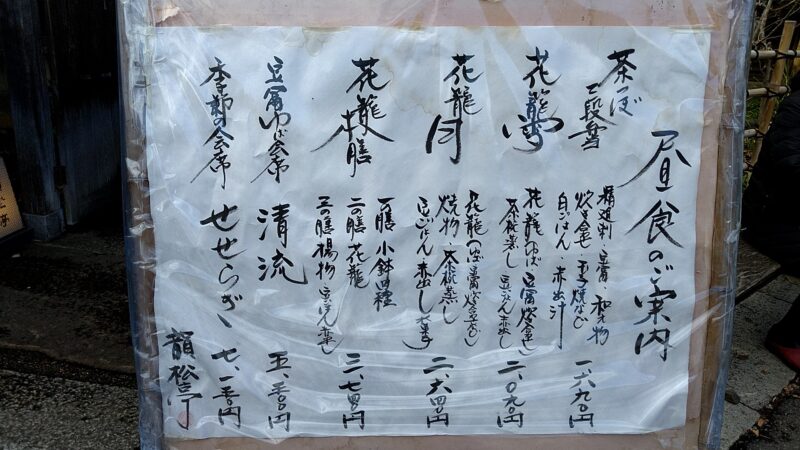 昼食のご案内
茶つぼ 二段重
精進刺・豆腐・和え物
炊き合せ・玉子焼など
白ごはん・赤出汁
一、六九〇円
花籠 雪
花籠 豆腐
茶碗蒸し 豆ごはん 赤出し
二、〇九〇円
花籠 月
花籠
焼物・茶碗蒸し
豆ごはん 赤出し
二、六四〇円
花籠 膳
一の膳 小鉢四種
二の膳 花籠
三の膳 揚物 豆ごはん 赤出し
三、七四〇円
豆腐ゆば会席
清流
五、五〇〇円
季節の会席
せせらぎ
七、一五〇円
松亭